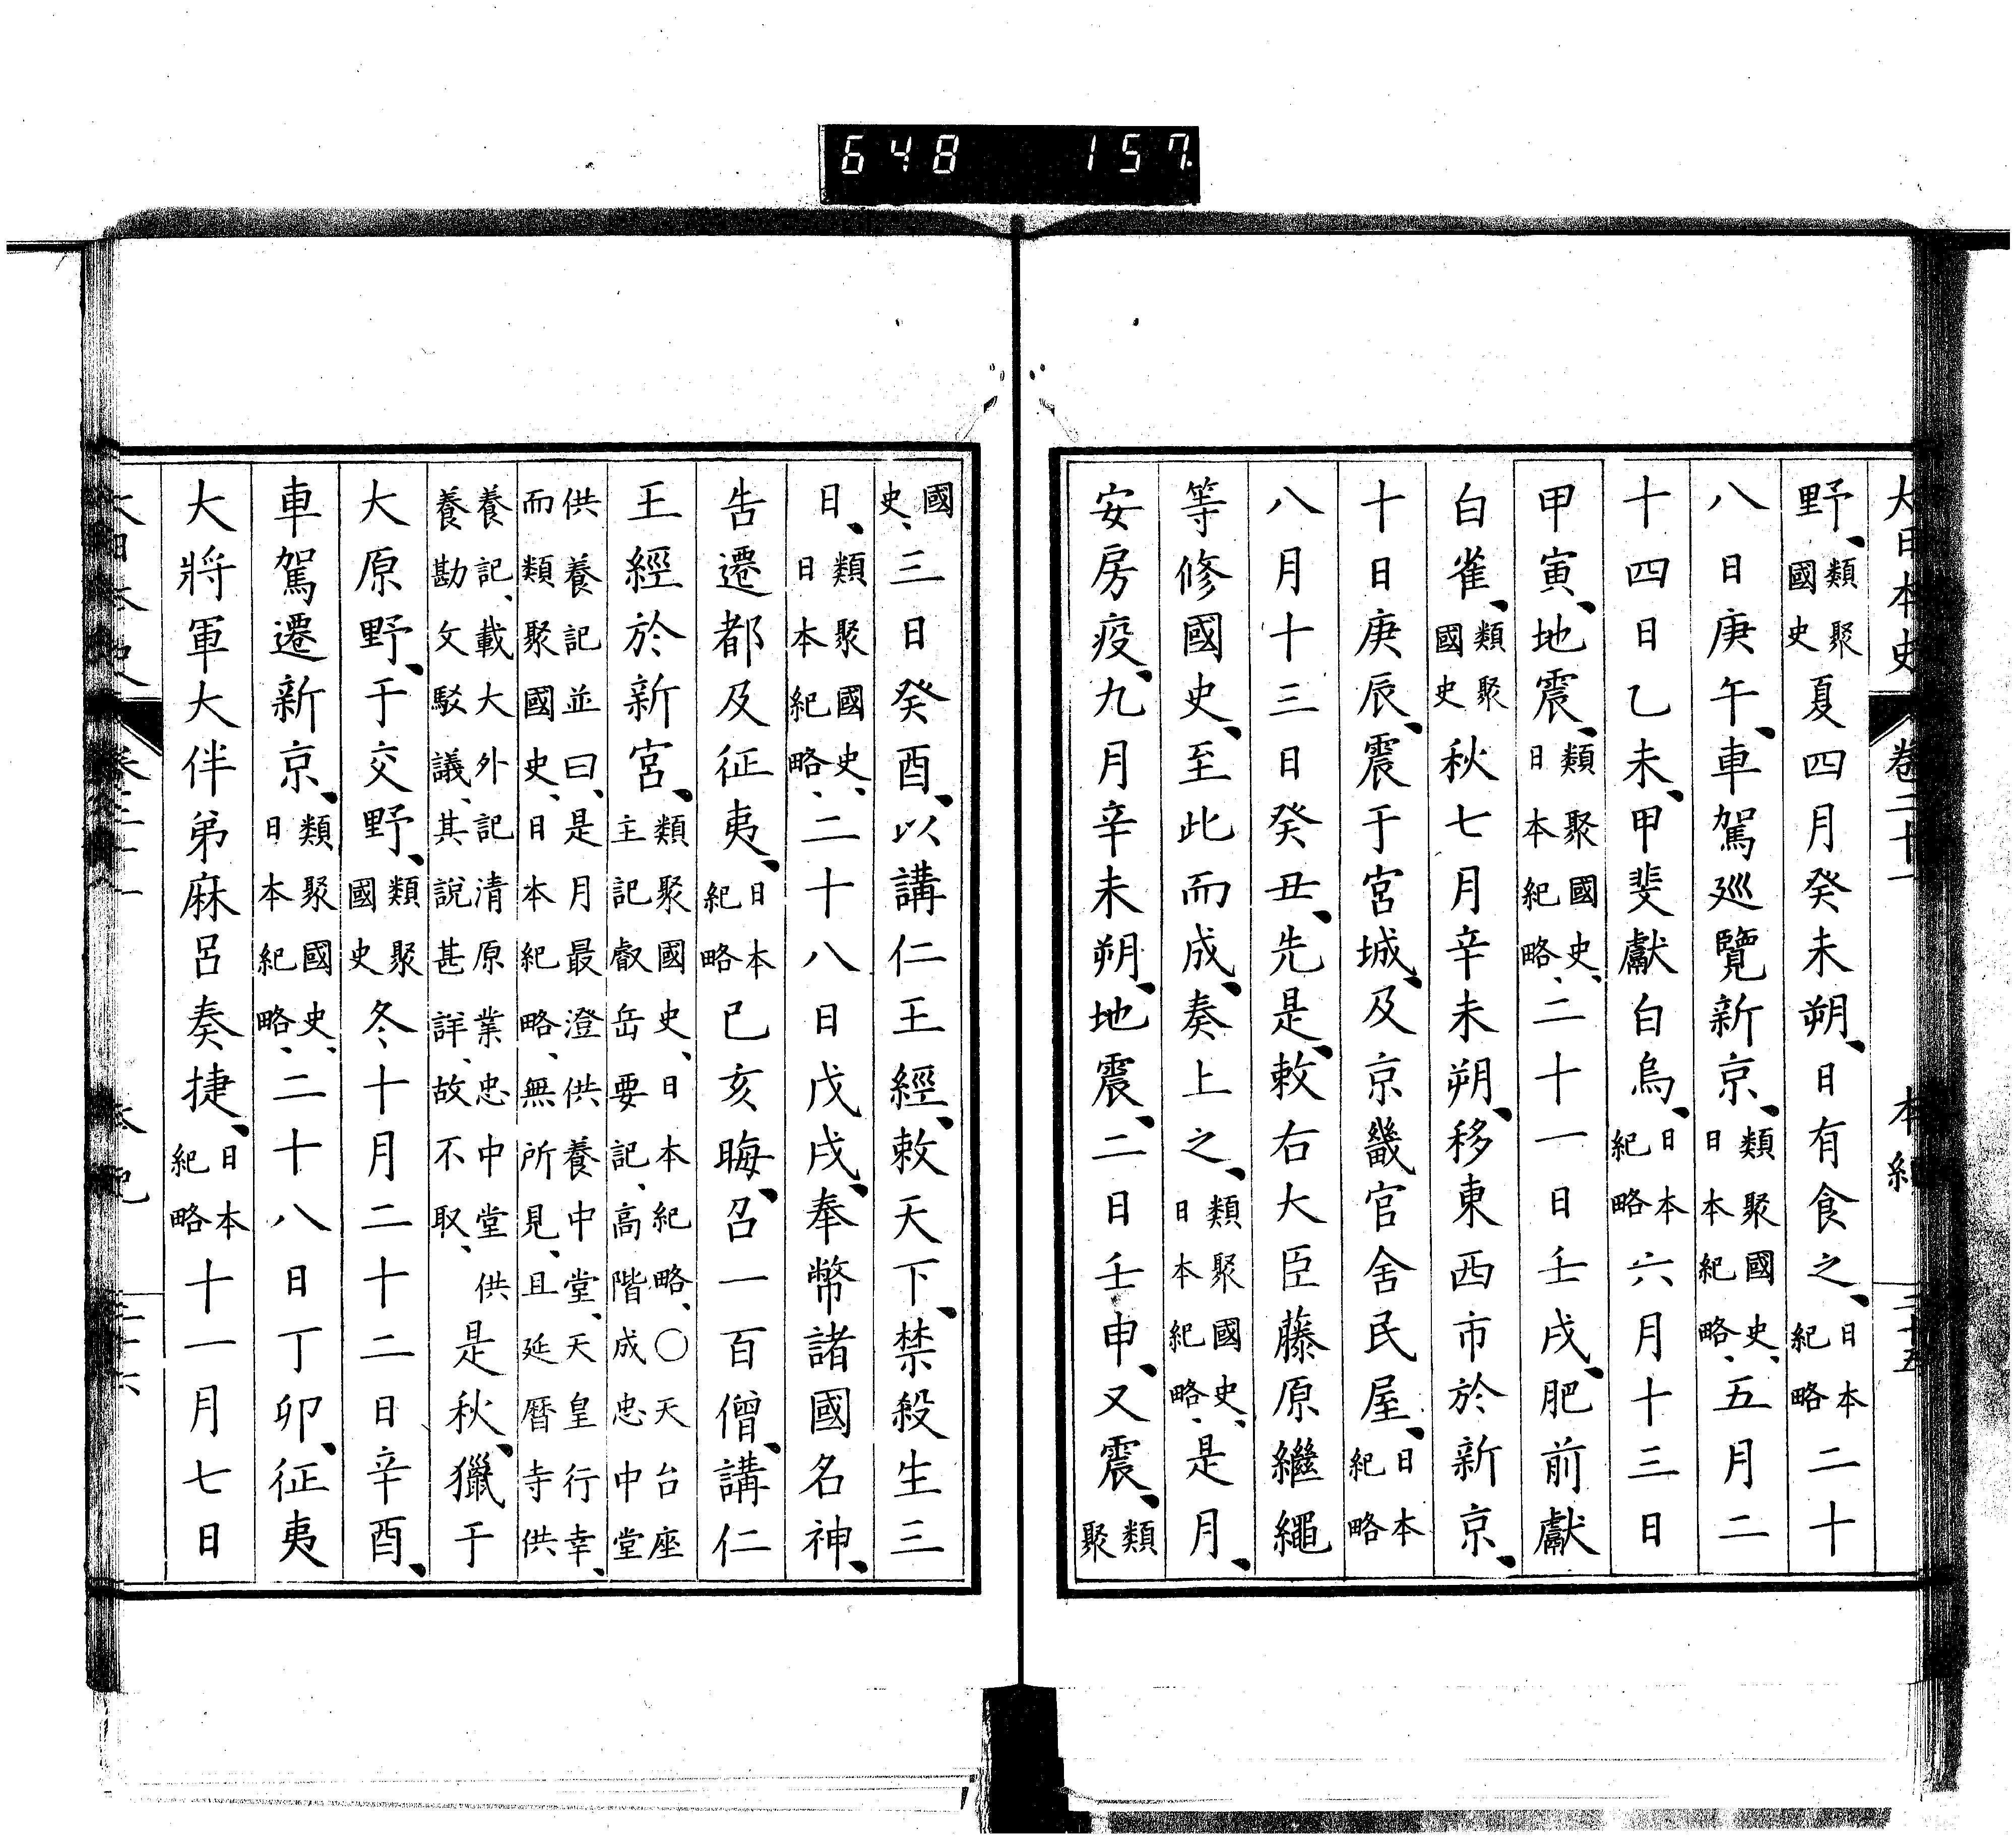 648 157
大日本史 卷二十一 本紀 二十五
野、類聚國史夏四月癸未朔、日有食之、日本紀略二十
八日庚午、車駕巡覽新京、類聚國史、日本紀略、五月二
十四日乙未、甲斐獻白烏、日本紀略六月十三日
甲寅、地震、類聚國史、日本紀略、二十一日壬戌、肥前獻
白雀、類聚國史秋七月辛未朔、移東西市於新京、
十日庚辰、震于宮城、及京畿官舍民屋、日本紀略
八月十三日癸丑、先是、敕右大臣藤原繼繩
等修國史、至此而成、奏上之、類聚國史、日本紀略、是月、
安房疫、九月辛未朔、地震、二日壬申、又震、類聚
國史、三日癸酉、以講仁王經、敕天下、禁殺生三
日、類聚國史、日本紀略、二十八日戊戌、奉幣諸國名神、
告遷都及征夷、日本紀略已亥晦、召一百僧、講仁
王經於新宮、類聚國史、日本紀略、〇天台座主記、叡岳要記、高階成忠中堂
供養記並曰、是月最澄供養中堂、天皇行幸、而類聚國史、日本紀略、無所見、且延曆寺供
養記、載大外記清原業忠中堂供養勘文駁議、其說甚詳、故不取、是秋、獵于
大原野、于交野、類聚國史冬、十月二十二日辛酉、
車駕遷新京、類聚國史、日本紀略、二十八日丁卯、征夷
大將軍大伴弟麻呂奏捷、日本紀略十一月七日